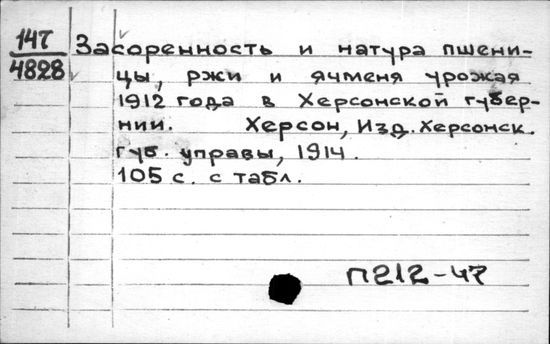 147
4828
Засоренность и натура пшени-
цы, ржи и ячменя урожая
1912 года в Херсонской губер-
нии. Херсон, Изд. Херсонск.
губ. управы, 1914.
105 с. с табл.
П212-47